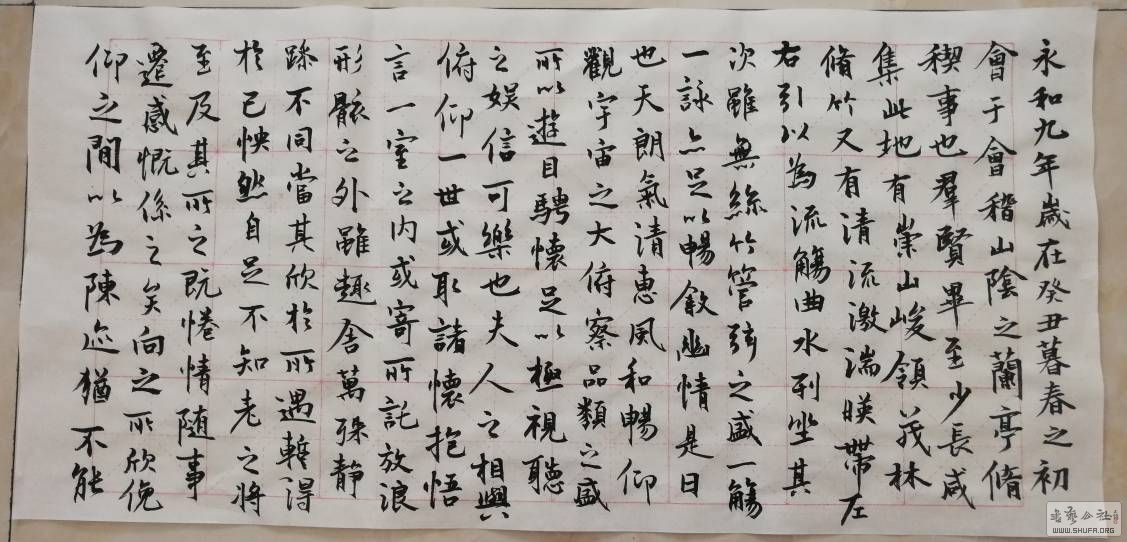 永和九年歲在癸丑暮春之初
會于會稽山陰之蘭亭脩
稧事也羣賢畢至少長咸
集此地有崇山峻領茂林
脩竹又有清流激湍暎帶左
右引以為流觴曲水列坐其
次雖無絲竹管弦之盛一觴
一詠亦足以暢敘幽情是日
也天朗氣清惠風和暢仰
觀宇宙之大俯察品類之盛
所以遊目騁懷足以極視聽
之娛信可樂也夫人之相與
俯仰一世或取諸懷抱悟
言一室之內或寄所託放浪
形骸之外雖趣舍萬殊静
躁不同當其欣於所遇暫得
於己怏然自足不知老之將
至及其所之既惓情隨事
遷感慨係之矣向之所欣俛
仰之間以為陳迹猶不能
書藝公社
WWW.SHUFA.ORG